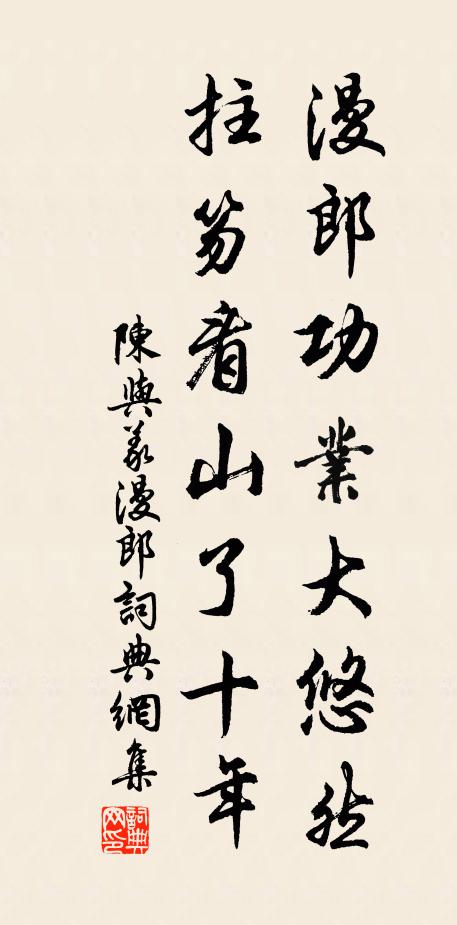 漫郎功業大悠然
拄笏看山了十年
陳與義漫郎詞典網集
詞典網印